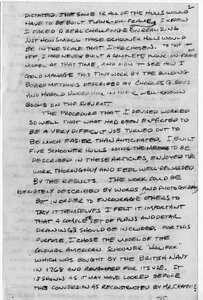 2
DICTATED THE SAME WAS ALL OF THE HULLS WOULD
HAVE TO BE BUILT PLANK-ON-FRAME. I KNEW
I FACED A REAL CHALLENGE IN REALIZING
JUST HOW SMALL THOSE SCHOONER HULLS WOULD
BE IN THE SCALE THAT I HAD CHOSEN. TO TOP IT
OFF, I HAD NEVER BUILT A COMPLETE PLANK-ON-FRAME
MODEL AT THAT TIME, AND DIDN'T SEE HOW I
COULD MANAGE THIS TINY WORK BY THE BUILDING
BOARD METHODS DESCRIBED BY CHARLES G. DAVIS
AND HAROLD HAHN IN THEIR WELL KNOWN
BOOKS ON THE SUBJECT.
THE PROCEDURE THAT I DEVISED WORKED
SO WELL THAT WHAT HAD BEEN EXPECTED TO
BE A VERY DIFFICULT JOB TURNED OUT TO
BE MUCH EASIER THAN ANTICIPATED. I BUILT
FIVE SCHOONER HULLS USING THE METHODS TO BE
DESCRIBED IN THESE ARTICLES, ENJOYED THE
WORK THOROUGHLY AND FEEL WELL REWARDED
BY THE RESULTS. THE WORK COULD BE
ADEQUATELY DESCRIBED BY WORDS AND PHOTOGRAPHS
BUT IN ORDER TO ENCOURAGE OTHERS TO
TRY IT THEMSELVES I FELT IT IMPORTANT
THAT A COMPLETE SET OF PLANS AND DETAIL
DRAWINGS SHOULD BE INCLUDED. FOR THIS
PURPOSE, I CHOSE THE MODEL OF THE
COLONIAL AMERICAN SCHOONER HALIFAX
WHICH WAS BOUGHT BY THE BRITISH NAVY
IN 1768 AND REMODELED FOR ITS USE. IT
IS SHOWN AS IT MAY HAVE LOOKED BEFORE
THIS CONVERSION AS RECONSTRUCTED BY MR. CHAPELLE